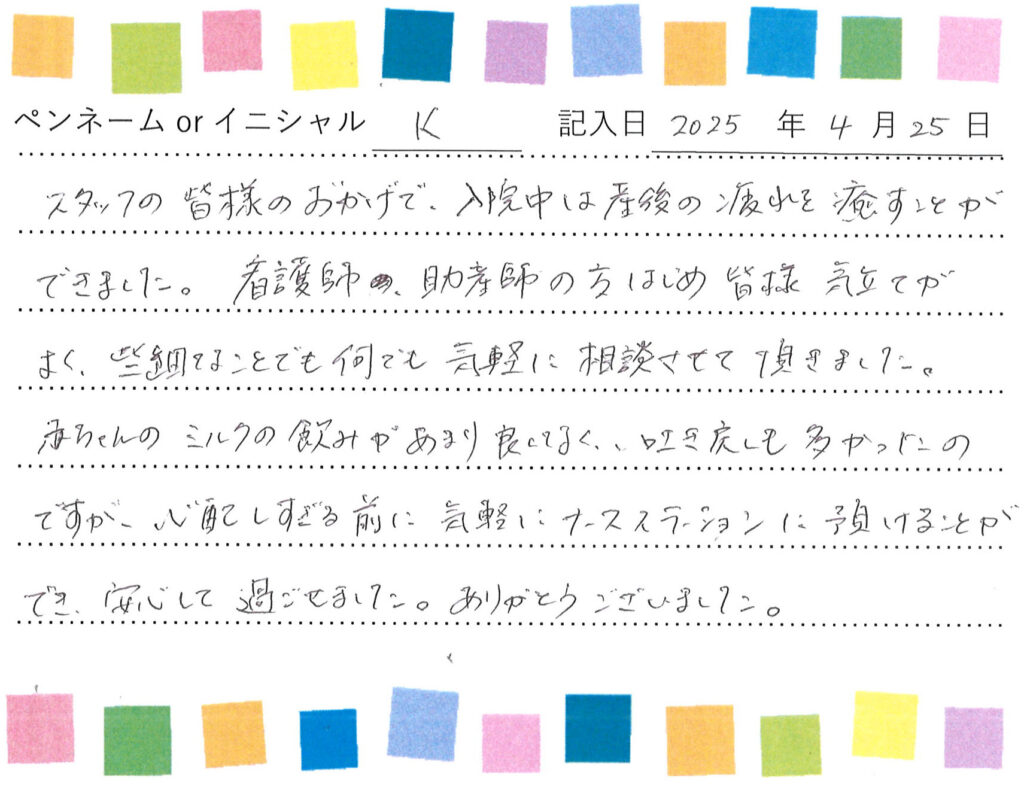 ペンネーム or イニシャル K 記入日 2025 年 4 月 25 日
スタッフの皆様のおかげで、入院中は産後の疲れを癒すことが
できました。看護師、助産師の方はじめ皆様気立てが
よく、些細なことでも何でも気軽に相談させて頂きました。
赤ちゃんのミルクの飲みがあまり良くなく、吐き戻しも多かったの
ですが、心配しすぎる前に気軽にナースステーションに預けることが
でき、安心して過ごせました。ありがとうございました。